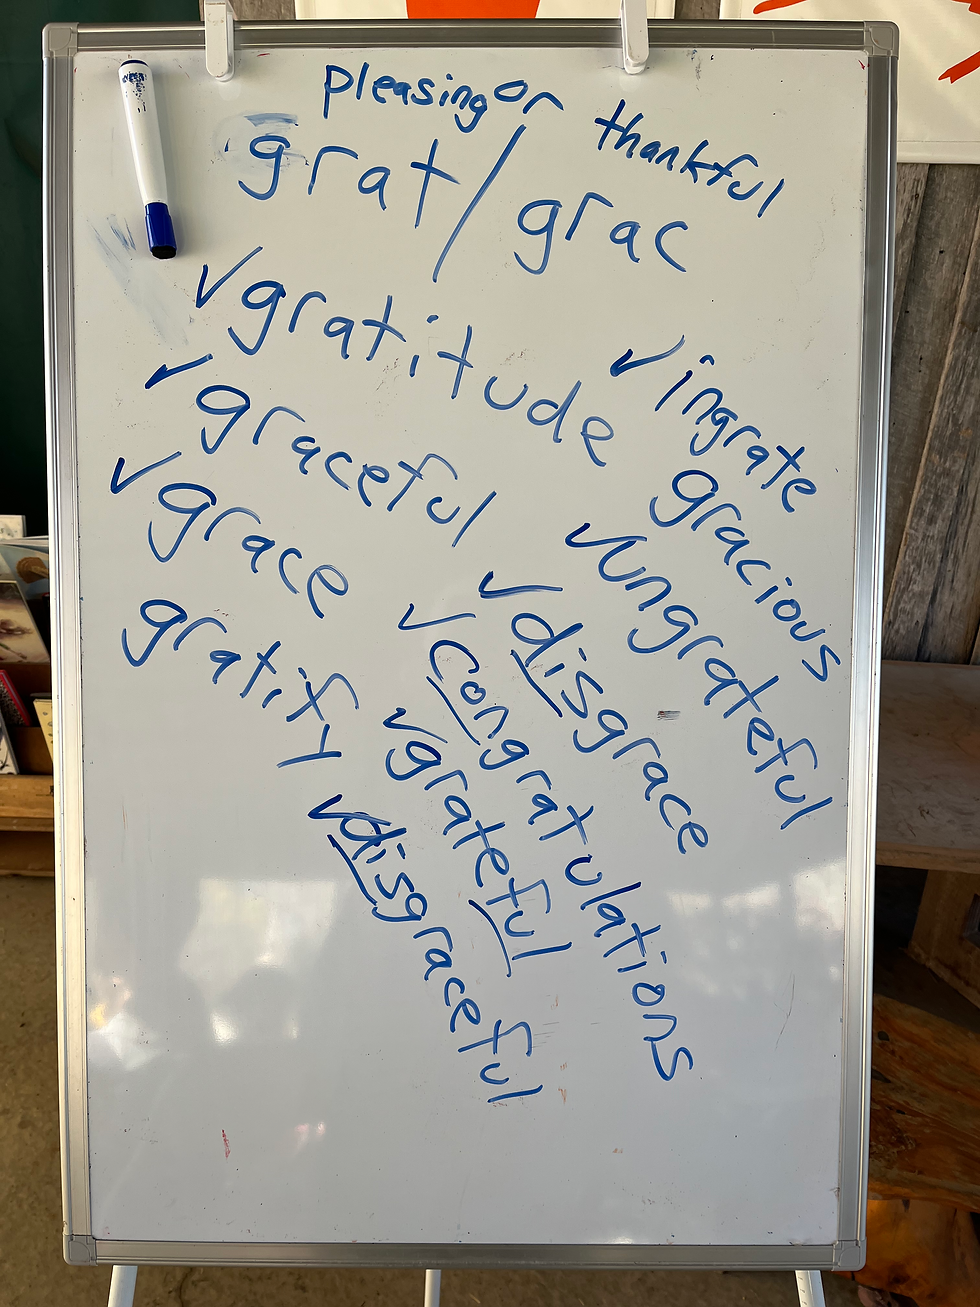 pleasing or thankful
grat/grac
✓gratitude
✓graceful
✓grace
gratify
✓ingrate
gracious
✓ungrateful
✓disgrace
✓congratulations
✓grateful
✓disgraceful